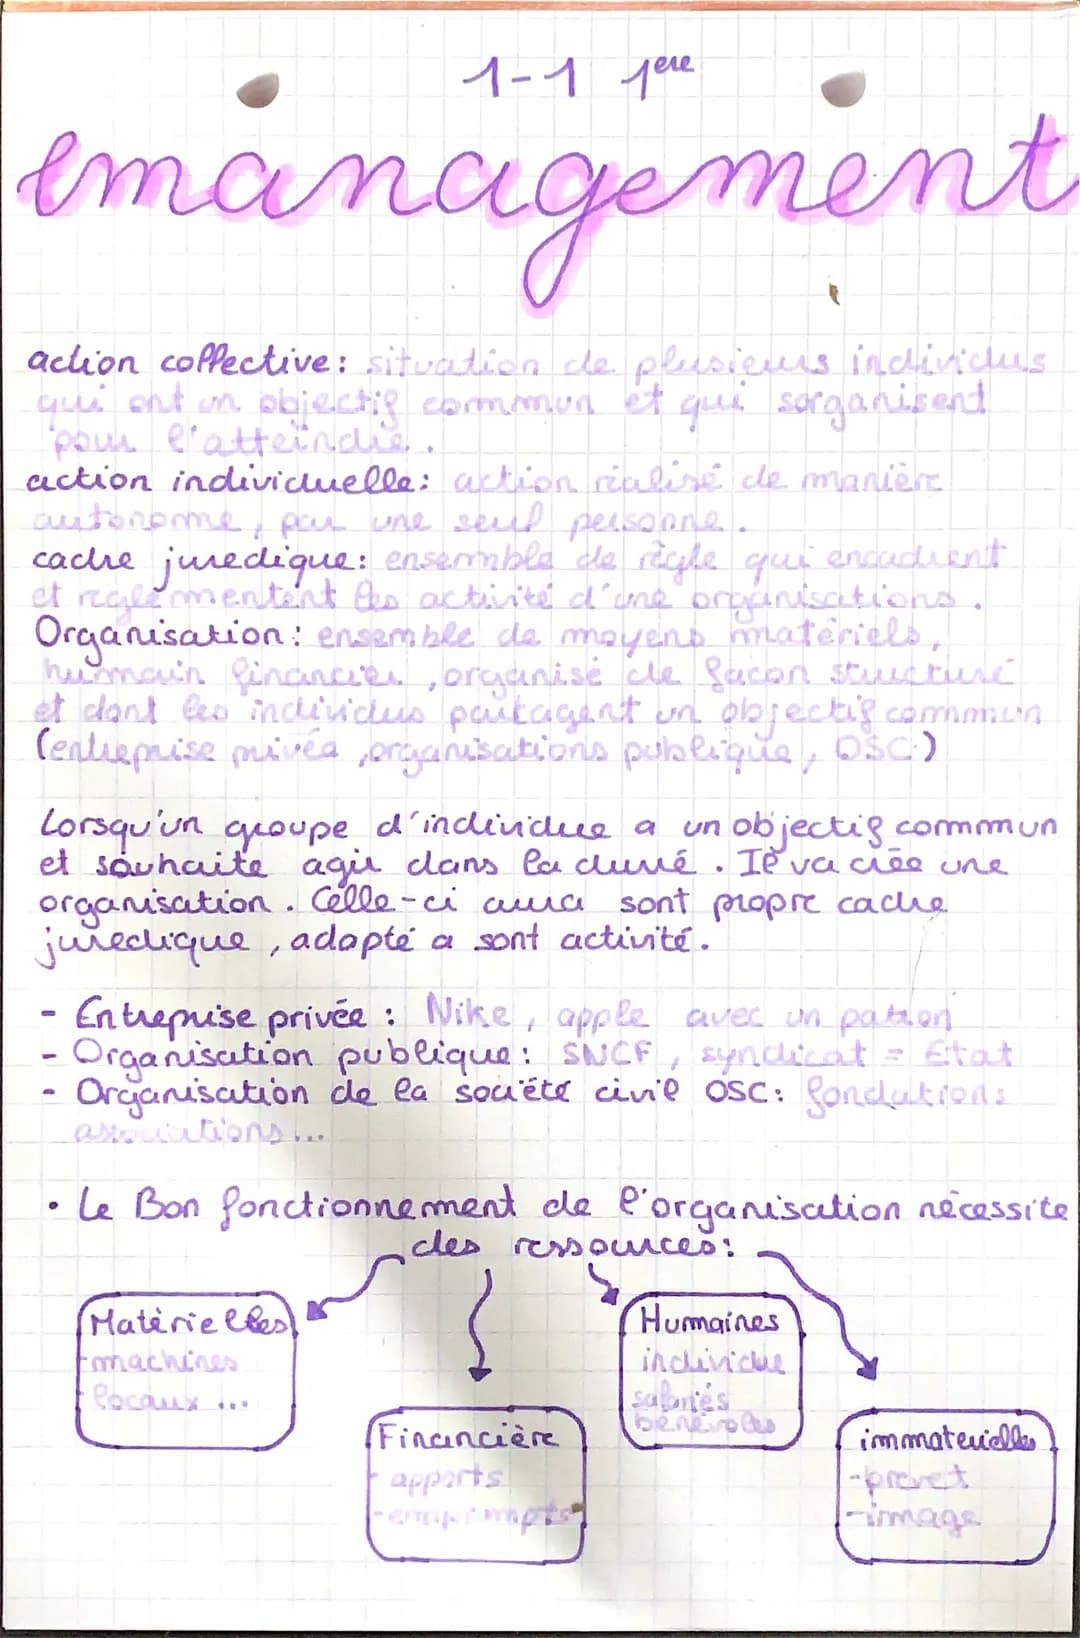 1-1 1ere
management
action collective: situation de plusieurs individus
qui ont un objectif commun et qui sorganisent
pour l'atteindre.
action individuelle: action réalisé de manière
autonome, par une seul personne.
cadre juredique: ensemble de règle qui encadrent
et reglementent les activité d'une organisations.
Organisation: ensemble de moyens matériels,
humain financier, organisé de façon structuré
et dont les individus partagent un objectif commun
(entreprise privéa, organisations publique, OSC)
Lorsqu'un groupe d'individue a un objectif commun
et souhaite agir dans la duré. Il va crée une
organisation. Celle-ci aura sont propre cadre
juredique, adapté a sont activité.
- Entreprise privée: Nike, apple avec un patron
- Organisation publique: SNCF, syndicat = État
- Organisation de la société civil OSC: fondations
associations...
• Le Bon fonctionnement de l'organisation nécessite
des ressources:
Matérielles
-machines
-locaux ...
Financière
- apports
-emprumpts
Humaines
individue
salariés
bénévoles
immaterielles
-prevet
-image